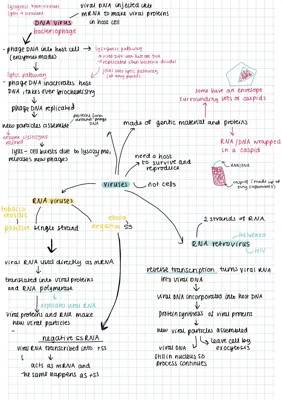 viral DNA injected into
mRNA to make viral proteins
in host cell
DNA virus
bacteriophage
phage DNA into host cell
(enzymes made)
lysogenic pathway
lytic pathway
phage DNA inactivates host
DNA, takes over biochemistry
phage DNA replicated
new particles assembled
lysis - cell bursts due to lysozyme,
releases new phages
some have an envelope
surrounding sets of capsids
made of genetic material and proteins
RNA/DNA wrapped
in a capsid
RNA/DNA
need a host
to survive and
reproduce
viruses
not cells
RNA viruses
tobacco
mosaic
positive
single strand
ebola
negative
ss
2 strands of RNA
RNA retrovirus
influenza
HIV
viral RNA used directly as mRNA
translated into viral proteins
and RNA polymerase
replicates viral RNA
viral proteins and RNA make
new viral particles
negative ssRNA
viral RNA transcribed into +ss
acts as mRNA and
the same happens as +ss
reverse transcription turns viral RNA
into viral DNA
viral DNA incorporated into host DNA
protein synthesis of viral proteins
new viral particles assembled
leave cell by
exocytosis
viral DNA
still in nucleus so
process continues